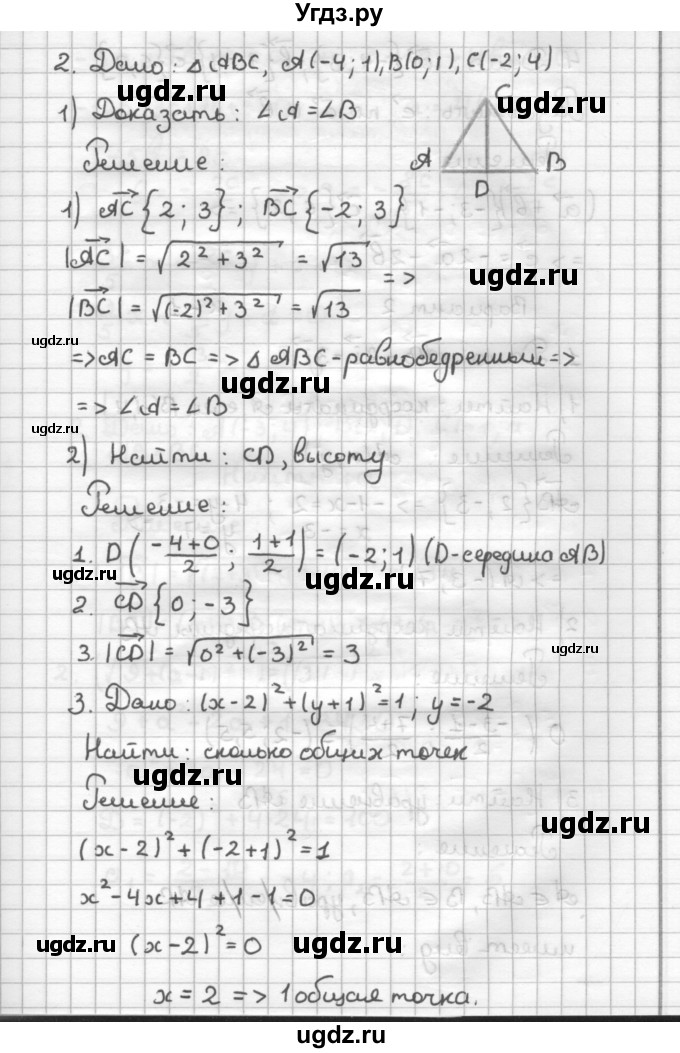 Угдз.ру
2. Дано: △ABC, A(-4; 1), B(0; 1), C(-2; 4)
ugdz.ru ugdz.ru
1) Доказать: ∠A = ∠B
C
Решение:
A B
D
1) AC⃗ {2; 3}; BC⃗ {-2; 3}
ugdz.ru
|AC⃗| = √(2² + 3²) = √13
=>
ugdz.ru
|BC⃗| = √((-2)² + 3²) = √13
ugdz.ru
=> AC = BC => △ ABC - равнобедренный =>
ugdz.ru
=> ∠A = ∠B
ugdz.ru
2) Найти: CD, высоту
ugdz.ru
Решение:
1. D((-4+0)/2; (1+1)/2) = (-2; 1) (D-середина AB)
ugdz.ru ugdz.ru
2. CD⃗ {0; -3}
3. |CD⃗| = √(0² + (-3)²) = 3
ugdz.ru
3. Дано: (x-2)² + (y+1)² = 1; y = -2
Найти: сколько общих точек
ugdz.ru
Решение:
ugdz.ru
(x-2)² + (-2+1)² = 1
x² - 4x + 4 + 1 - 1 = 0
ugdz.ru (x-2)² = 0 ugdz.ru
x = 2 => 1 общая точка.
ugdz.ru